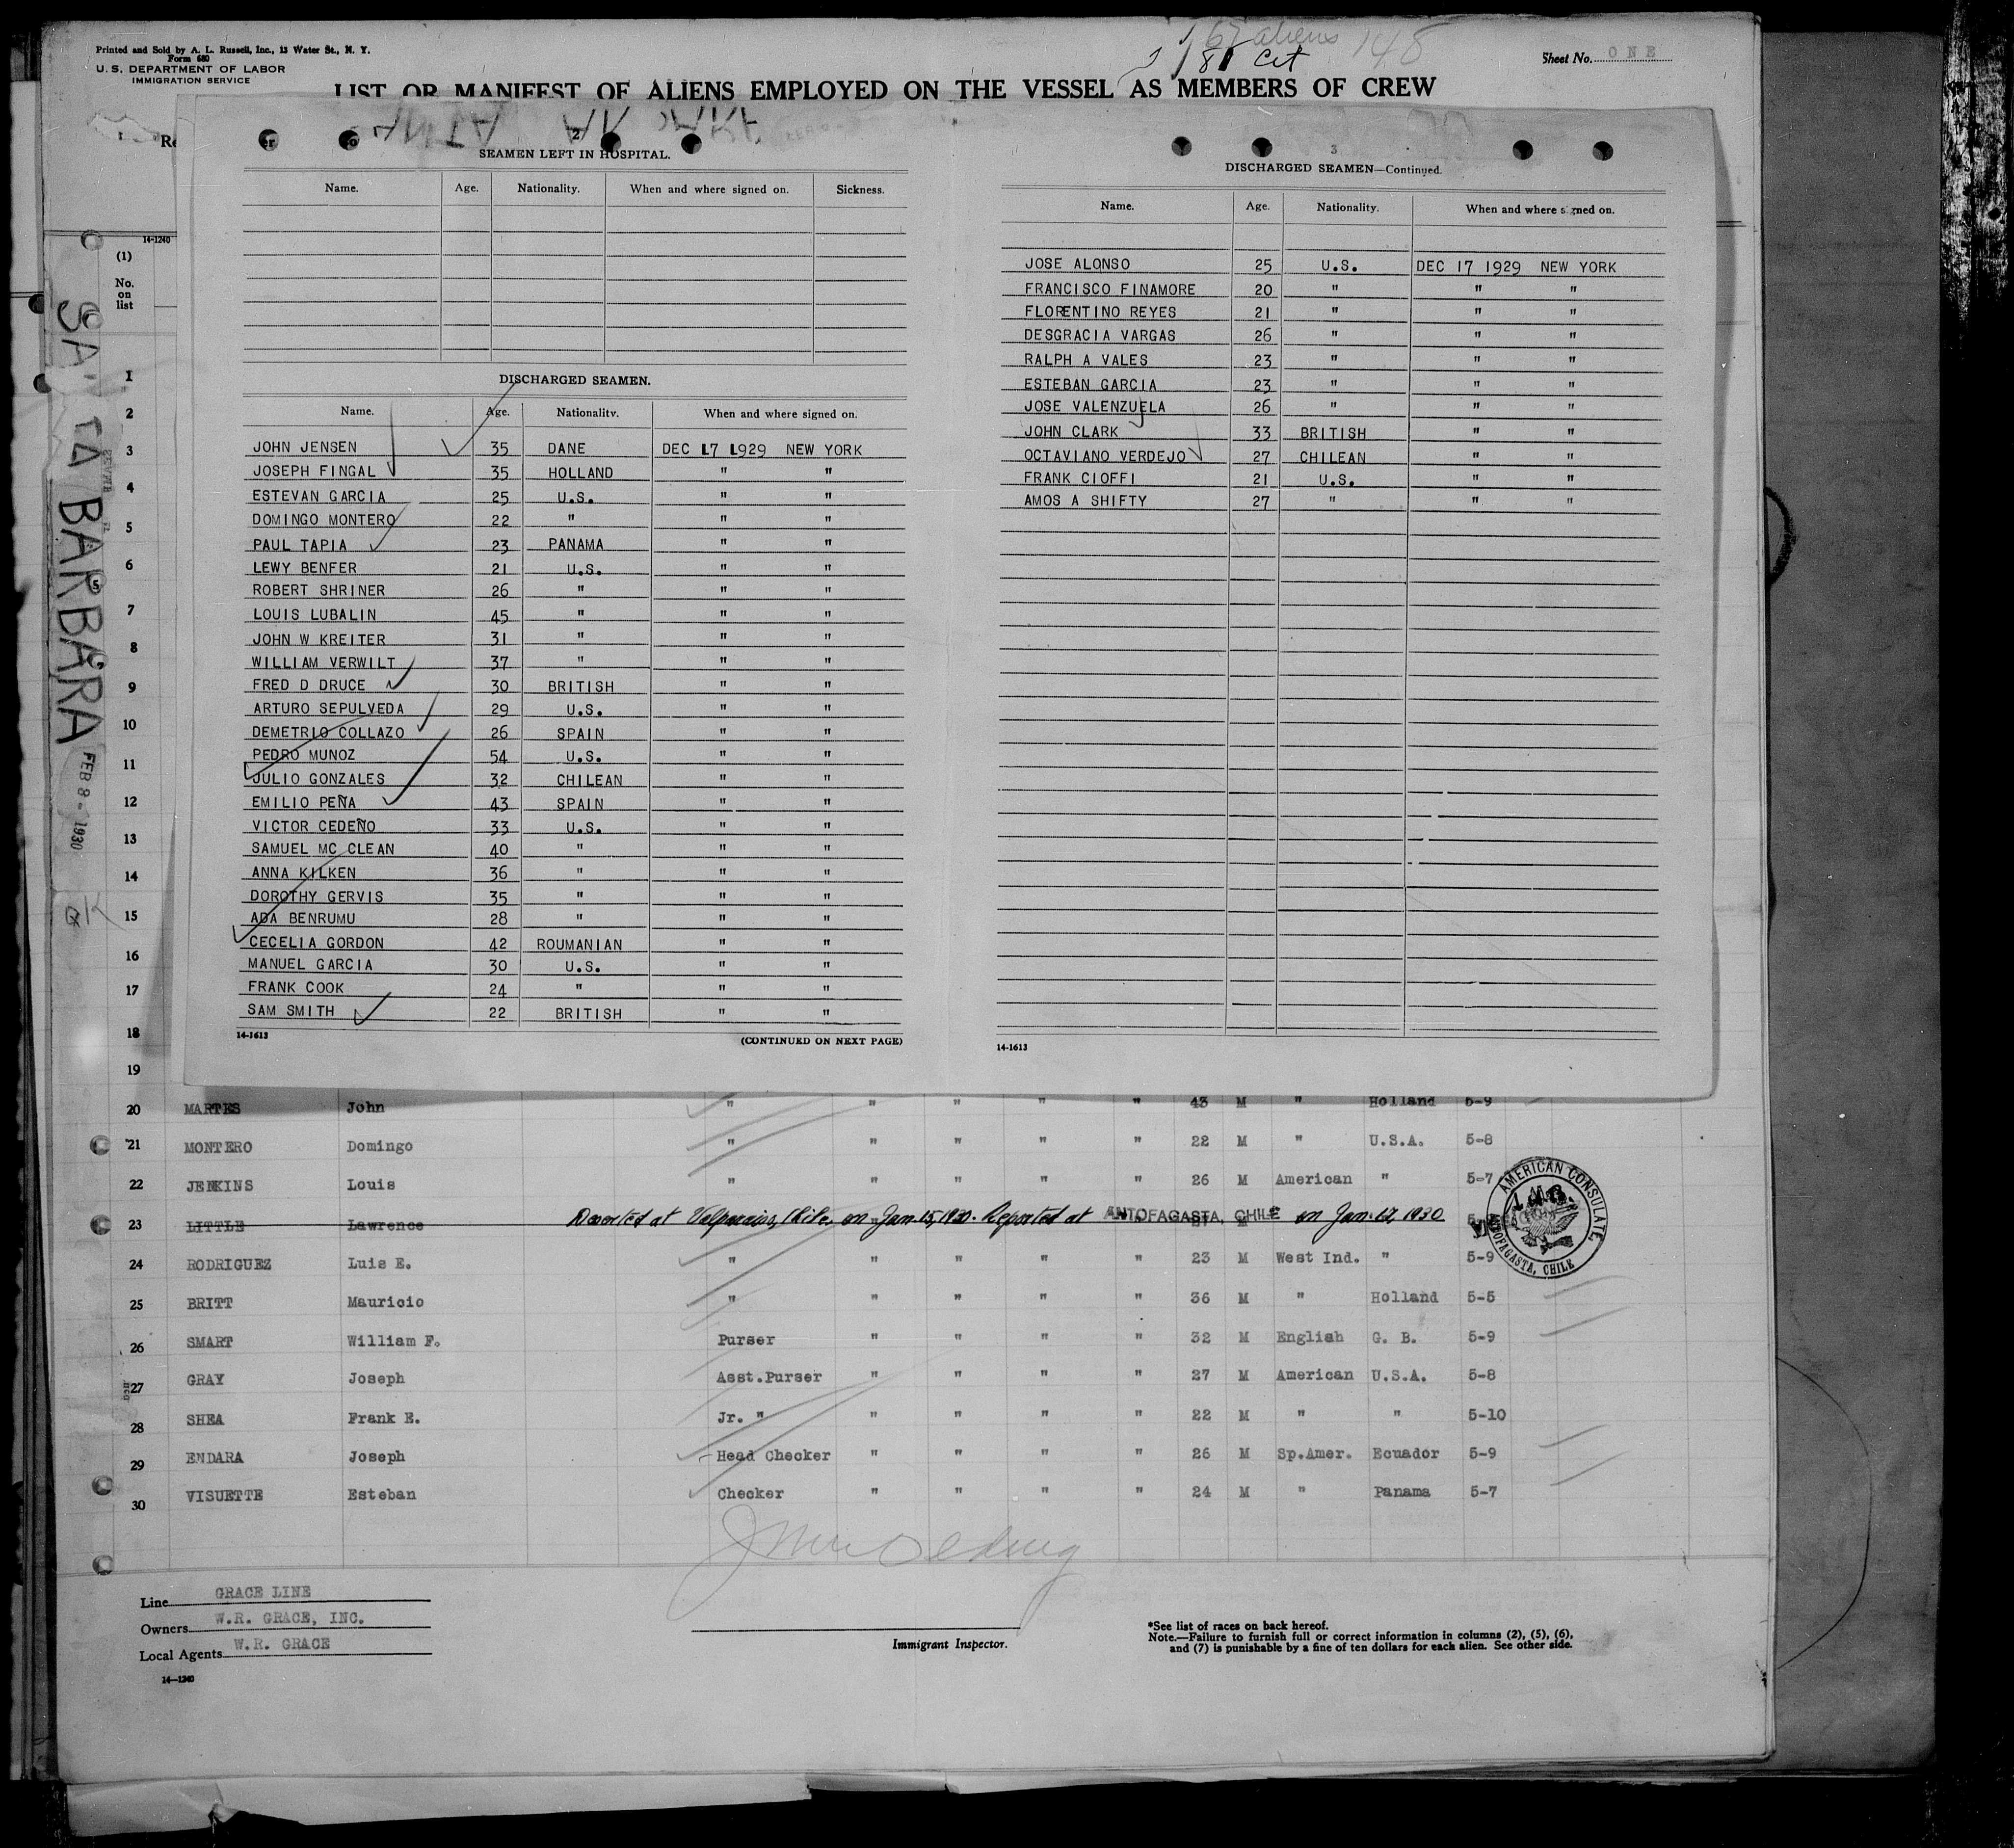 Printed and Sold by A. L. Russell, Inc., 13 Water St., N. Y.
Form 680
U. S. DEPARTMENT OF LABOR
IMMIGRATION SERVICE
167 aliens 148
181 Cit
Sheet No. ONE
LIST OR MANIFEST OF ALIENS EMPLOYED ON THE VESSEL AS MEMBERS OF CREW
SANTA BARBARA
FEB 8 - 1930
OK
14-1240
(1)
No. on list
1
2
3
4
5
6
7
8
9
10
11
12
13
14
15
16
17
18
19
2
SEAMEN LEFT IN HOSPITAL.
Name. Age. Nationality. When and where signed on. Sickness.
DISCHARGED SEAMEN.
Name. Age. Nationality. When and where signed on.
JOHN JENSEN 35 DANE DEC 17 1929 NEW YORK
JOSEPH FINGAL 35 HOLLAND " "
ESTEVAN GARCIA 25 U.S. " "
DOMINGO MONTERO 22 " " "
PAUL TAPIA 23 PANAMA " "
LEWY BENFER 21 U.S. " "
ROBERT SHRINER 26 " " "
LOUIS LUBALIN 45 " " "
JOHN W KREITER 31 " " "
WILLIAM VERWILT 37 " " "
FRED D DRUCE 30 BRITISH " "
ARTURO SEPULVEDA 29 U.S. " "
DEMETRIO COLLAZO 26 SPAIN " "
PEDRO MUNOZ 54 U.S. " "
JULIO GONZALES 32 CHILEAN " "
EMILIO PEÑA 43 SPAIN " "
VICTOR CEDEÑO 33 U.S. " "
SAMUEL MC CLEAN 40 " " "
ANNA KILKEN 36 " " "
DOROTHY GERVIS 35 " " "
ADA BENRUMU 28 " " "
CECELIA GORDON 42 ROUMANIAN " "
MANUEL GARCIA 30 U.S. " "
FRANK COOK 24 " " "
SAM SMITH 22 BRITISH " "
14-1613 (CONTINUED ON NEXT PAGE)
3
DISCHARGED SEAMEN—Continued.
Name. Age. Nationality. When and where signed on.
JOSE ALONSO 25 U.S. DEC 17 1929 NEW YORK
FRANCISCO FINAMORE 20 " " "
FLORENTINO REYES 21 " " "
DESGRACIA VARGAS 26 " " "
RALPH A VALES 23 " " "
ESTEBAN GARCIA 23 " " "
JOSE VALENZUELA 26 " " "
JOHN CLARK 33 BRITISH " "
OCTAVIANO VERDEJO 27 CHILEAN " "
FRANK CIOFFI 21 U.S. " "
AMOS A SHIFTY 27 " " "
14-1613
20 MARTES John " " " " " 43 M " Holland 5-9
21 MONTERO Domingo " " " " " 22 M " U.S.A. 5-8
22 JENKINS Louis " " " " " 26 M American " 5-7
23 LITTLE Lawrence Deserted at Valparaiso, Chile, on Jan. 15, 1930. Reported at ANTOFAGASTA, CHILE on Jan. 17, 1930
AMERICAN CONSULATE, ANTOFAGASTA, CHILE
24 RODRIGUEZ Luis E. " " " " " 23 M West Ind. " 5-9
25 BRITT Mauricio " " " " " 36 M " Holland 5-5
26 SMART William F. Purser " " " " 32 M English G. B. 5-9
27 GRAY Joseph Asst.Purser " " " " 27 M American U.S.A. 5-8
28 SHEA Frank E. Jr. " " " " " 22 M " " 5-10
29 ENDARA Joseph Head Checker " " " " 26 M Sp.Amer. Ecuador 5-9
30 VISUETTE Esteban Checker " " " " 24 M " Panama 5-7
Line GRACE LINE
Owners W.R. GRACE, INC.
Local Agents W.R. GRACE
14-1240
Immigrant Inspector.
*See list of races on back hereof.
Note.—Failure to furnish full or correct information in columns (2), (5), (6),
and (7) is punishable by a fine of ten dollars for each alien. See other side.